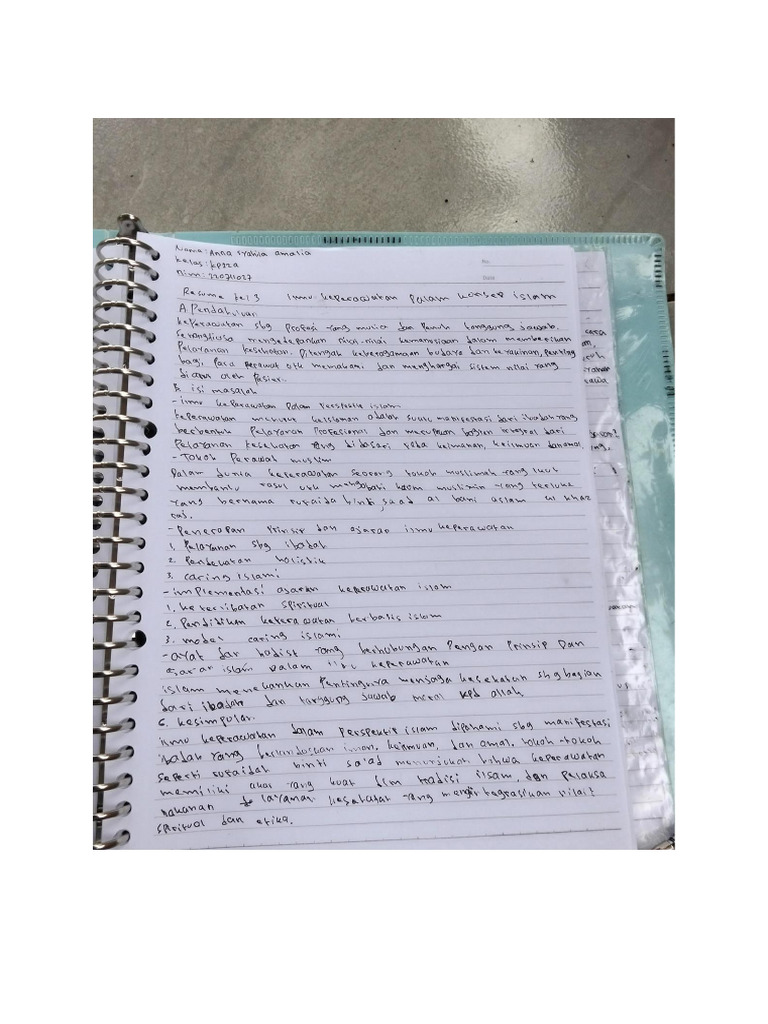 Nama : Anna syahila amalia
kelas : KP22a
Nim : 220711027
No.
Date
Resume kel 3 Ilmu keperawatan Dalam konsep islam
A. Pendahuluan
keperawatan sbg profesi yang mulia dan penuh tanggung jawab,
mengedepankan nilai-nilai kemanusiaan dalam memberikan
Pelayanan kesehatan. Ditengah keberagamaan budaya dan keyakinan, penting
bagi para perawat utk memahami dan menghargai sistem nilai yang
dianut oleh pasien.
B. isi masalah
- ilmu keperawatan Dalam Perspektif islam
keperawatan menurut keislaman adalah suatu manifestasi dari ibadah yang
berbentuk Pelayanan Profesional dan merupakan bagian integral dari
Pelayanan kesehatan yang didasari pada keimanan, keilmuan dan amal.
- Tokoh Perawat muslim
Dalam dunia keperawatan seorang tokoh muslimah yang ikut
membantu rasul utk mengobati kaum muslimin yang terluka
yang bernama rufaida binti saad al bani aslam al khaz
raj.
- Penerapan Prinsip dan ajaran ilmu keperawatan
1. Pelayanan sbg ibadah
2. Pendekatan holistik
3. caring Islami
- implementasi ajaran keperawatan islam
1. keterlibatan spiritual
2. Pendidikan keperawatan berbasis islam
3. model caring islami
- ayat dan hadist yang berhubungan Dengan Prinsip Dan
ajaran islam Dalam ilmu keperawatan
islam menekankan Pentingnya menjaga kesehatan sbg bagian
dari ibadah dan tanggung jawab moral kpd allah.
C. kesimpulan.
ilmu keperawatan dalam Perspektif islam dipahami sbg manifestasi
ibadah yang berlandaskan iman, keilmuan, dan amal. tokoh-tokoh
seperti rufaidah binti sa'ad menunjukan bahwa keperawatan
memiliki akar yang kuat dlm tradisi ilsam, dan pelaksa
nakanan layanan kesehatan yang mengintegrasikan nilai
spiritual dan etika.